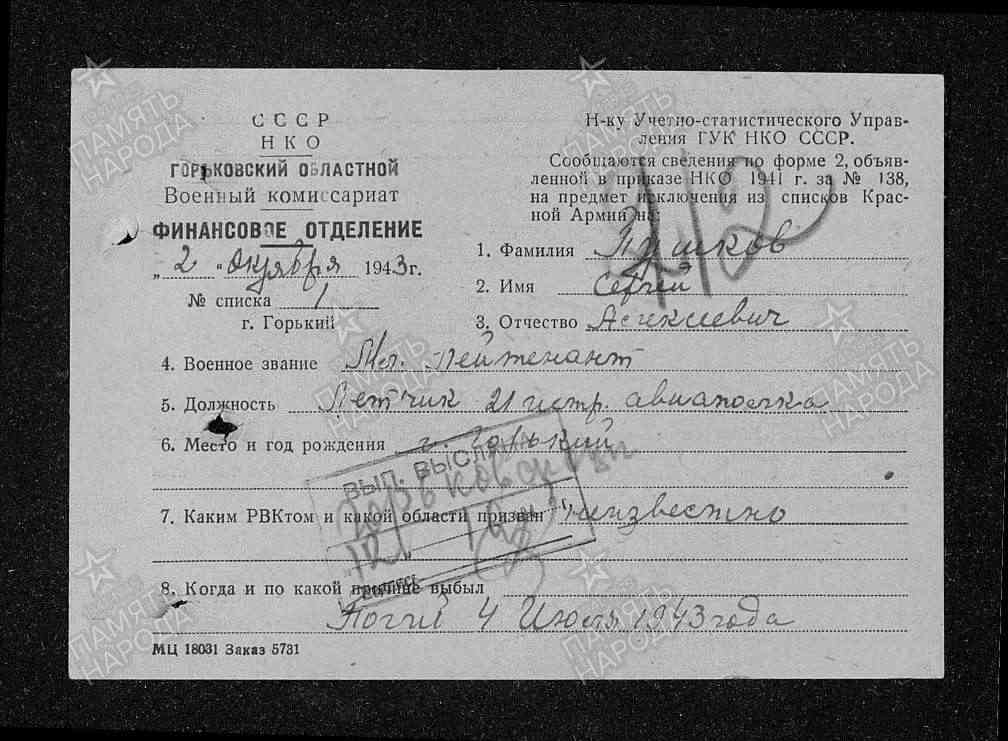 СССР
НКО
ГОРЬКОВСКИЙ ОБЛАСТНОЙ
Военный комиссариат
ФИНАНСОВОЕ ОТДЕЛЕНИЕ
„2" октября 1943г.
№ списка 1
г. Горький
Н-ку Учетно-статистического Управ-
ления ГУК НКО СССР.
Сообщаются сведения по форме 2, объяв-
ленной в приказе НКО 1941 г. за № 138,
на предмет исключения из списков Крас-
ной Армии на:
1. Фамилия
2. Имя Сергей
3. Отчество Алексеевич
4. Военное звание Мл. Лейтенант
5. Должность Летчик 21 истр. авиаполка
6. Место и год рождения г. Горький
ВЫП. ВЫСЛАНА
Горьковский
7. Каким РВКтом и какой области призван неизвестно
8. Когда и по какой причине выбыл
Погиб 4 Июля 1943 года
МЦ 18031 Заказ 5731
ПАМЯТЬ НАРОДА
ПАМЯТЬ НАРОДА
ПАМЯТЬ НАРОДА
ПАМЯТЬ НАРОДА
ПАМЯТЬ НАРОДА
ПАМЯТЬ НАРОДА